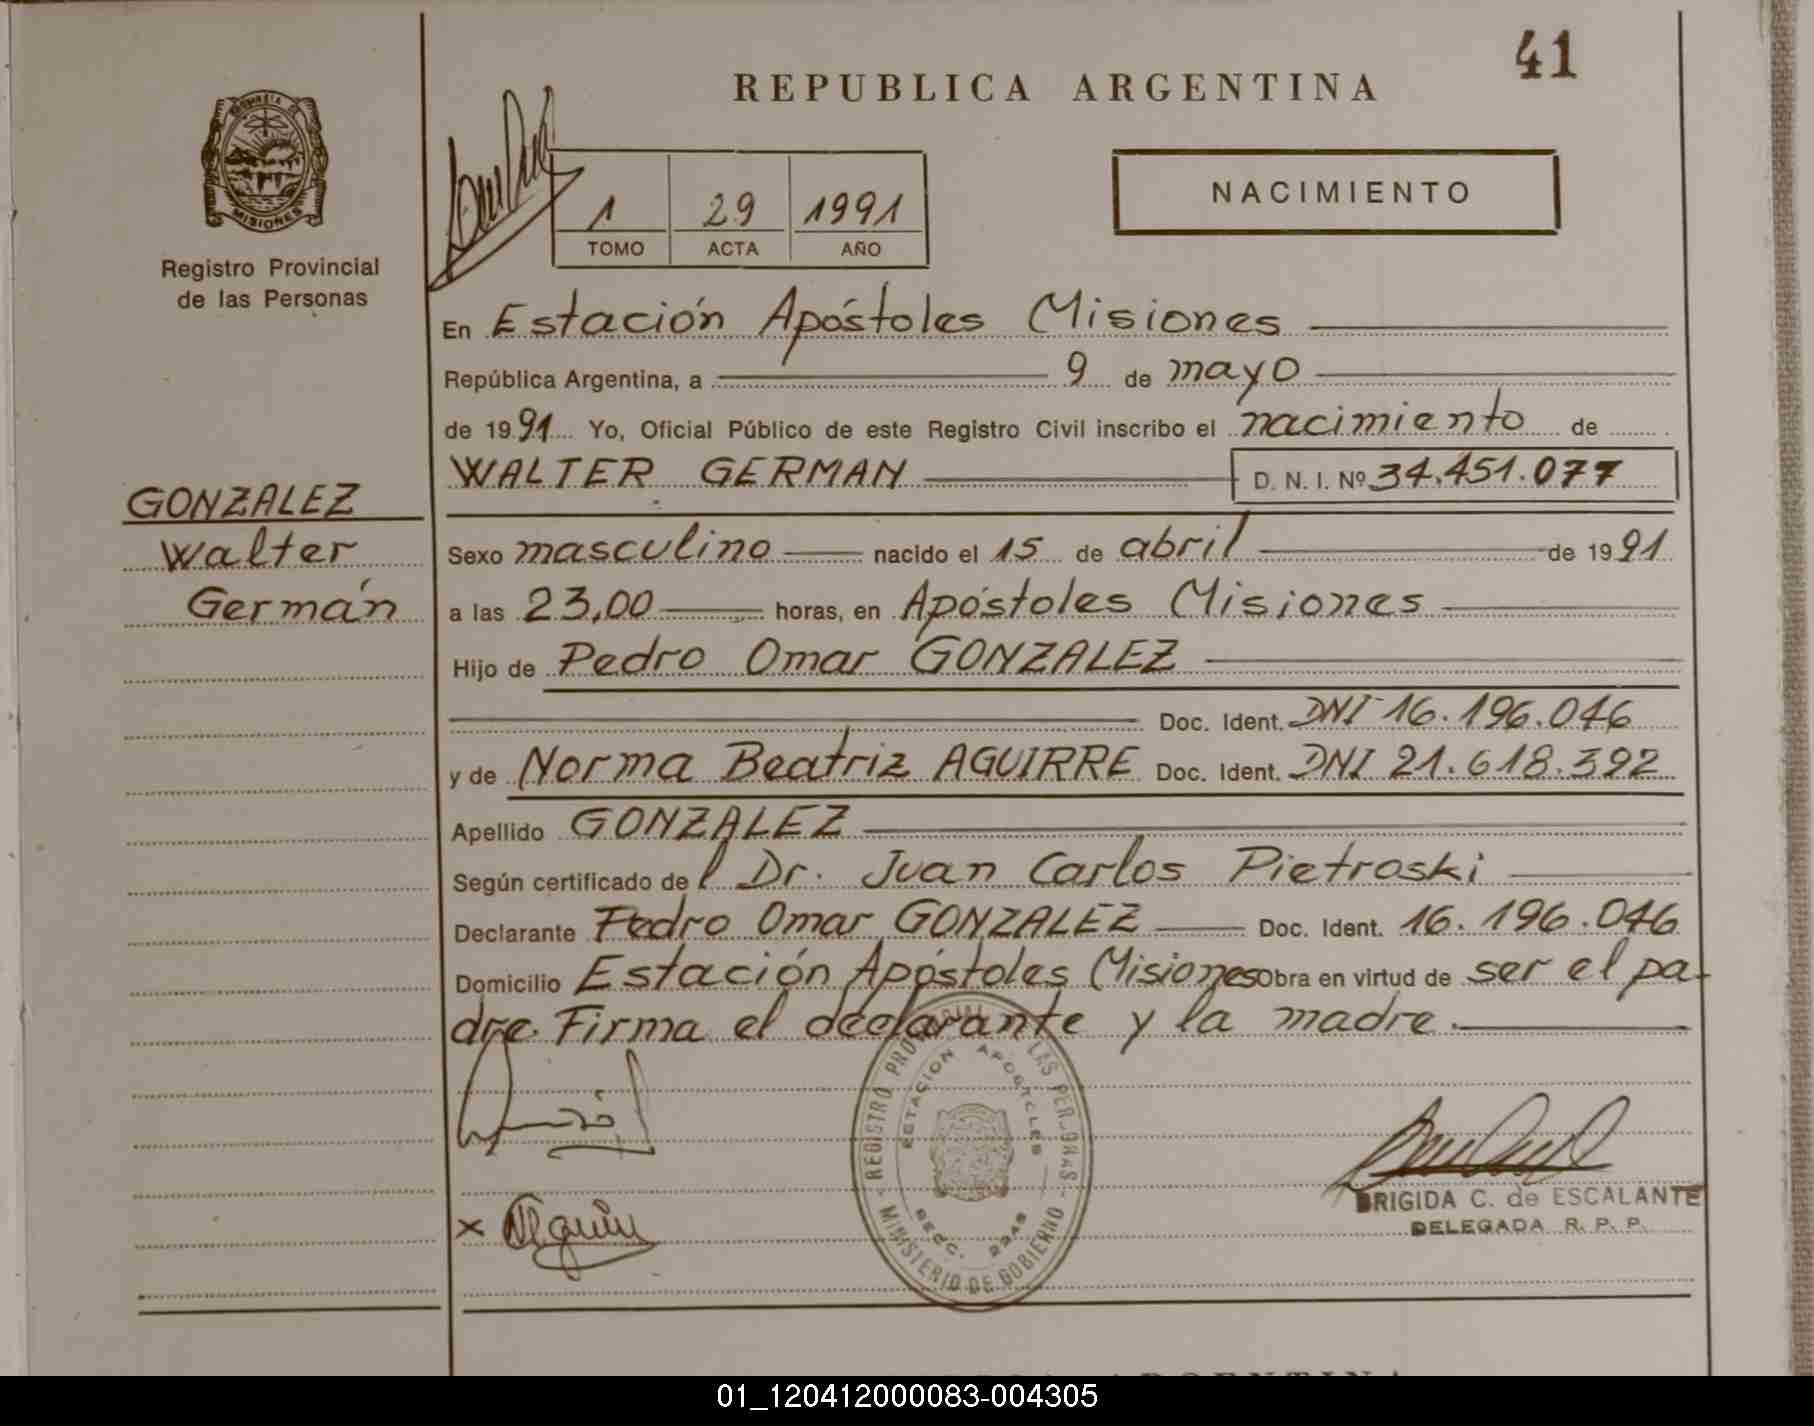 41
REPUBLICA ARGENTINA
MISIONES
Registro Provincial
de las Personas
1 29 1991
TOMO ACTA AÑO
NACIMIENTO
En Estación Apóstoles Misiones
República Argentina, a 9 de mayo
de 1991 Yo, Oficial Público de este Registro Civil inscribo el nacimiento de
WALTER GERMAN D. N. I. Nº 34.451.077
GONZALEZ
Walter
Germán
Sexo masculino nacido el 15 de abril de 1991
a las 23,00 horas, en Apóstoles Misiones
Hijo de Pedro Omar GONZALEZ
Doc. Ident. DNI 16.196.046
y de Norma Beatriz AGUIRRE Doc. Ident. DNI 21.618.392
Apellido GONZALEZ
Según certificado del Dr. Juan Carlos Pietroski
Declarante Pedro Omar GONZALEZ Doc. Ident. 16.196.046
Domicilio Estación Apóstoles Misiones Obra en virtud de ser el pa-
dre. Firma el declarante y la madre.
REGISTRO PROVINCIAL LAS PERSONAS
ESTACION APOSTOLES
SECC. 2345
MINISTERIO DE GOBIERNO
BRIGIDA C. de ESCALANTE
DELEGADA R. P. P.
x
ARGENTINA
01_120412000083-004305